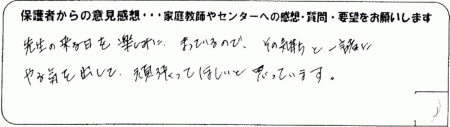 保護者からの意見感想・・・家庭教師やセンターへの感想・質問・要望をお願いします
先生の来る日を楽しみに、まっているので、その気持ちと一緒に
やる気を出して、頑張ってほしいと思っています。